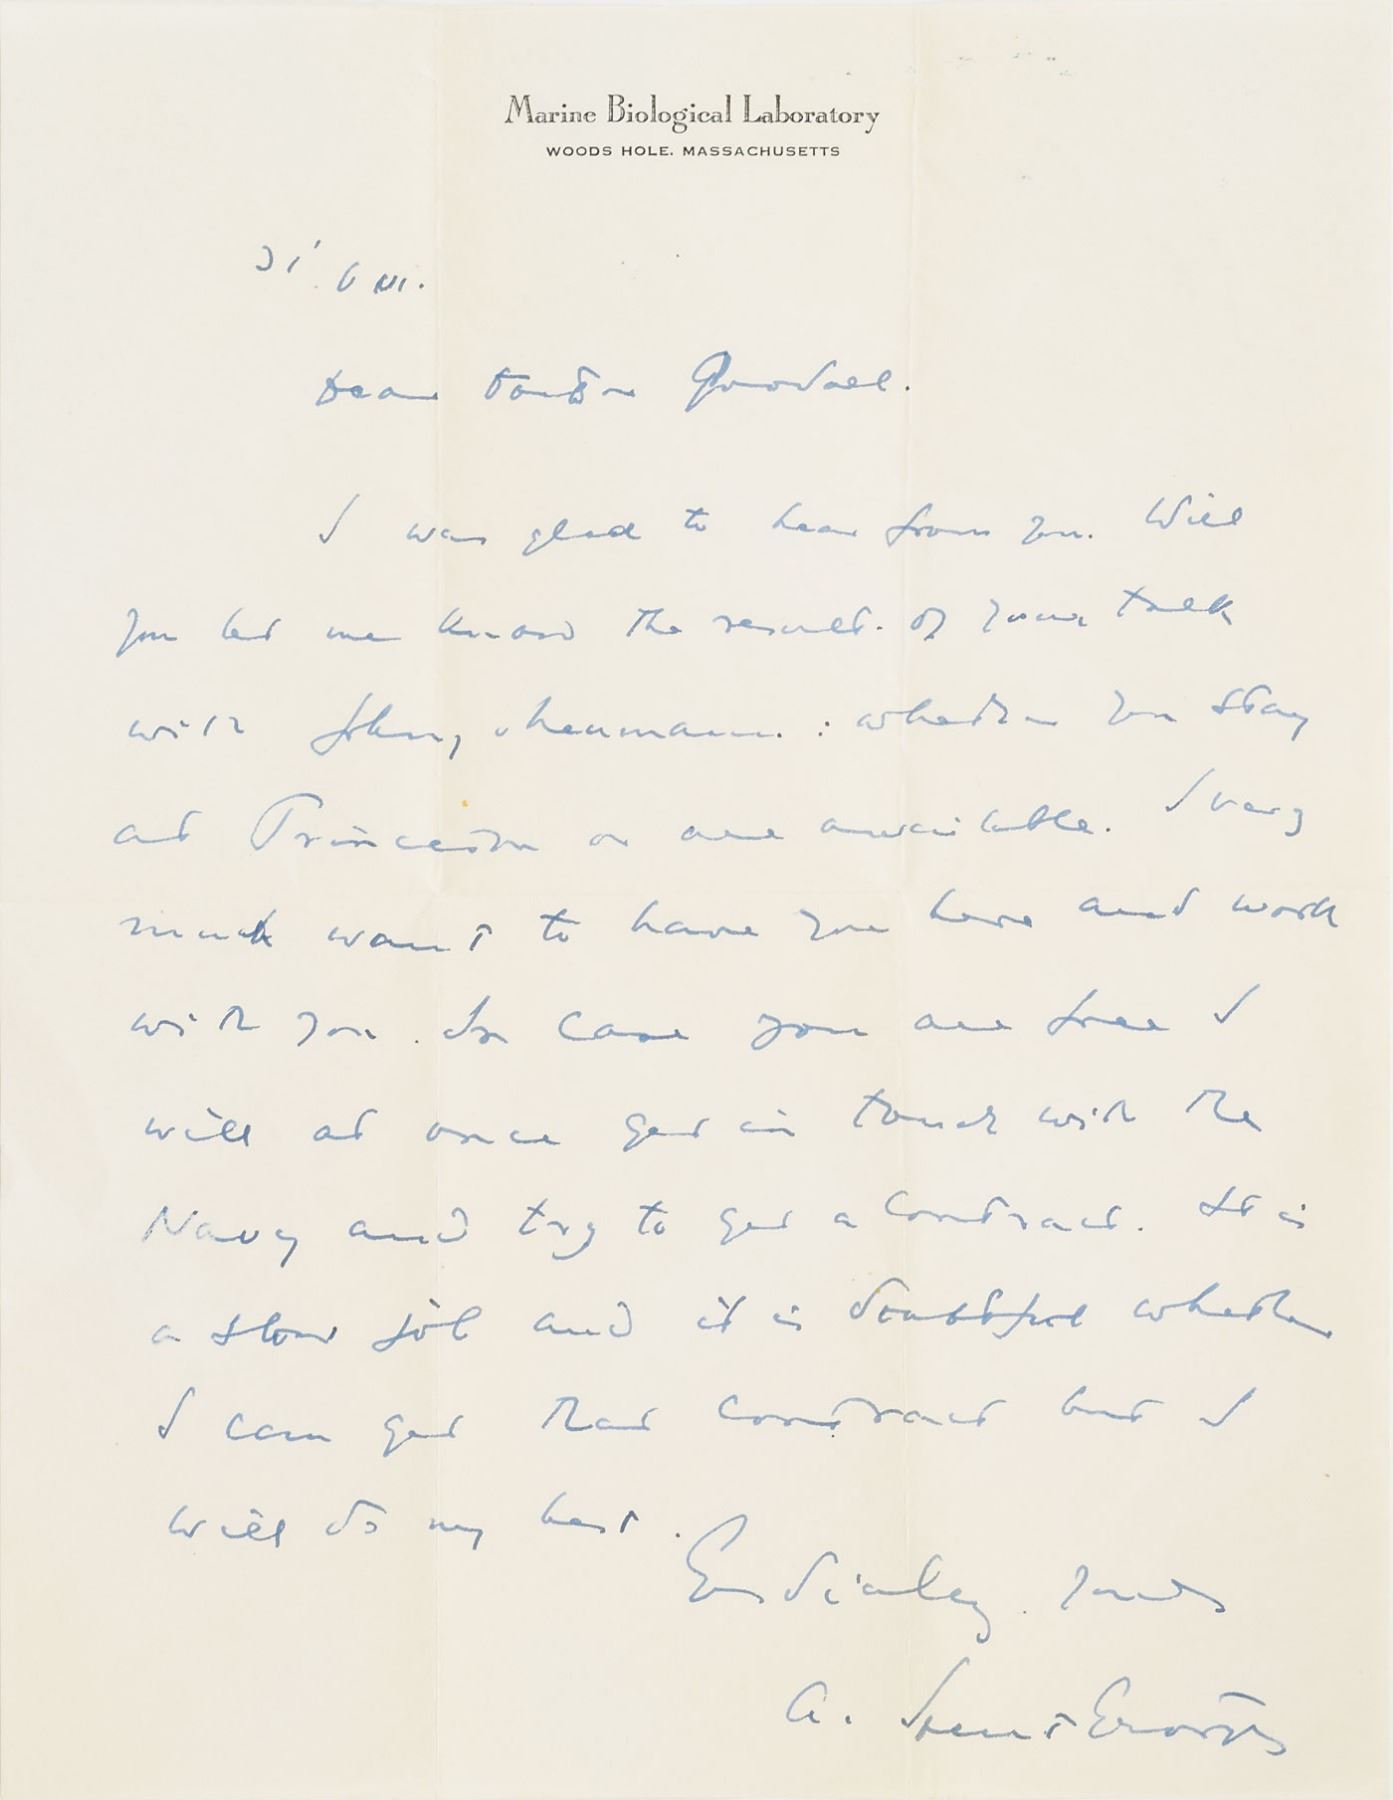 Marine Biological Laboratory
WOODS HOLE, MASSACHUSETTS
Dear Doctor
I was glad to hear from you. Will
you let me know the result. of your talk
with Johny Neumann. : whether you stay
at Princeton or are available. I very
much want to have you here and work
with you. In case you are free I
will at once get in touch with the
Navy and try to get a contract. It is
a slow job and it is doubtful whether
I can get that contract but I
will do my best.
Cordialey yours
A. Szent Györgyi